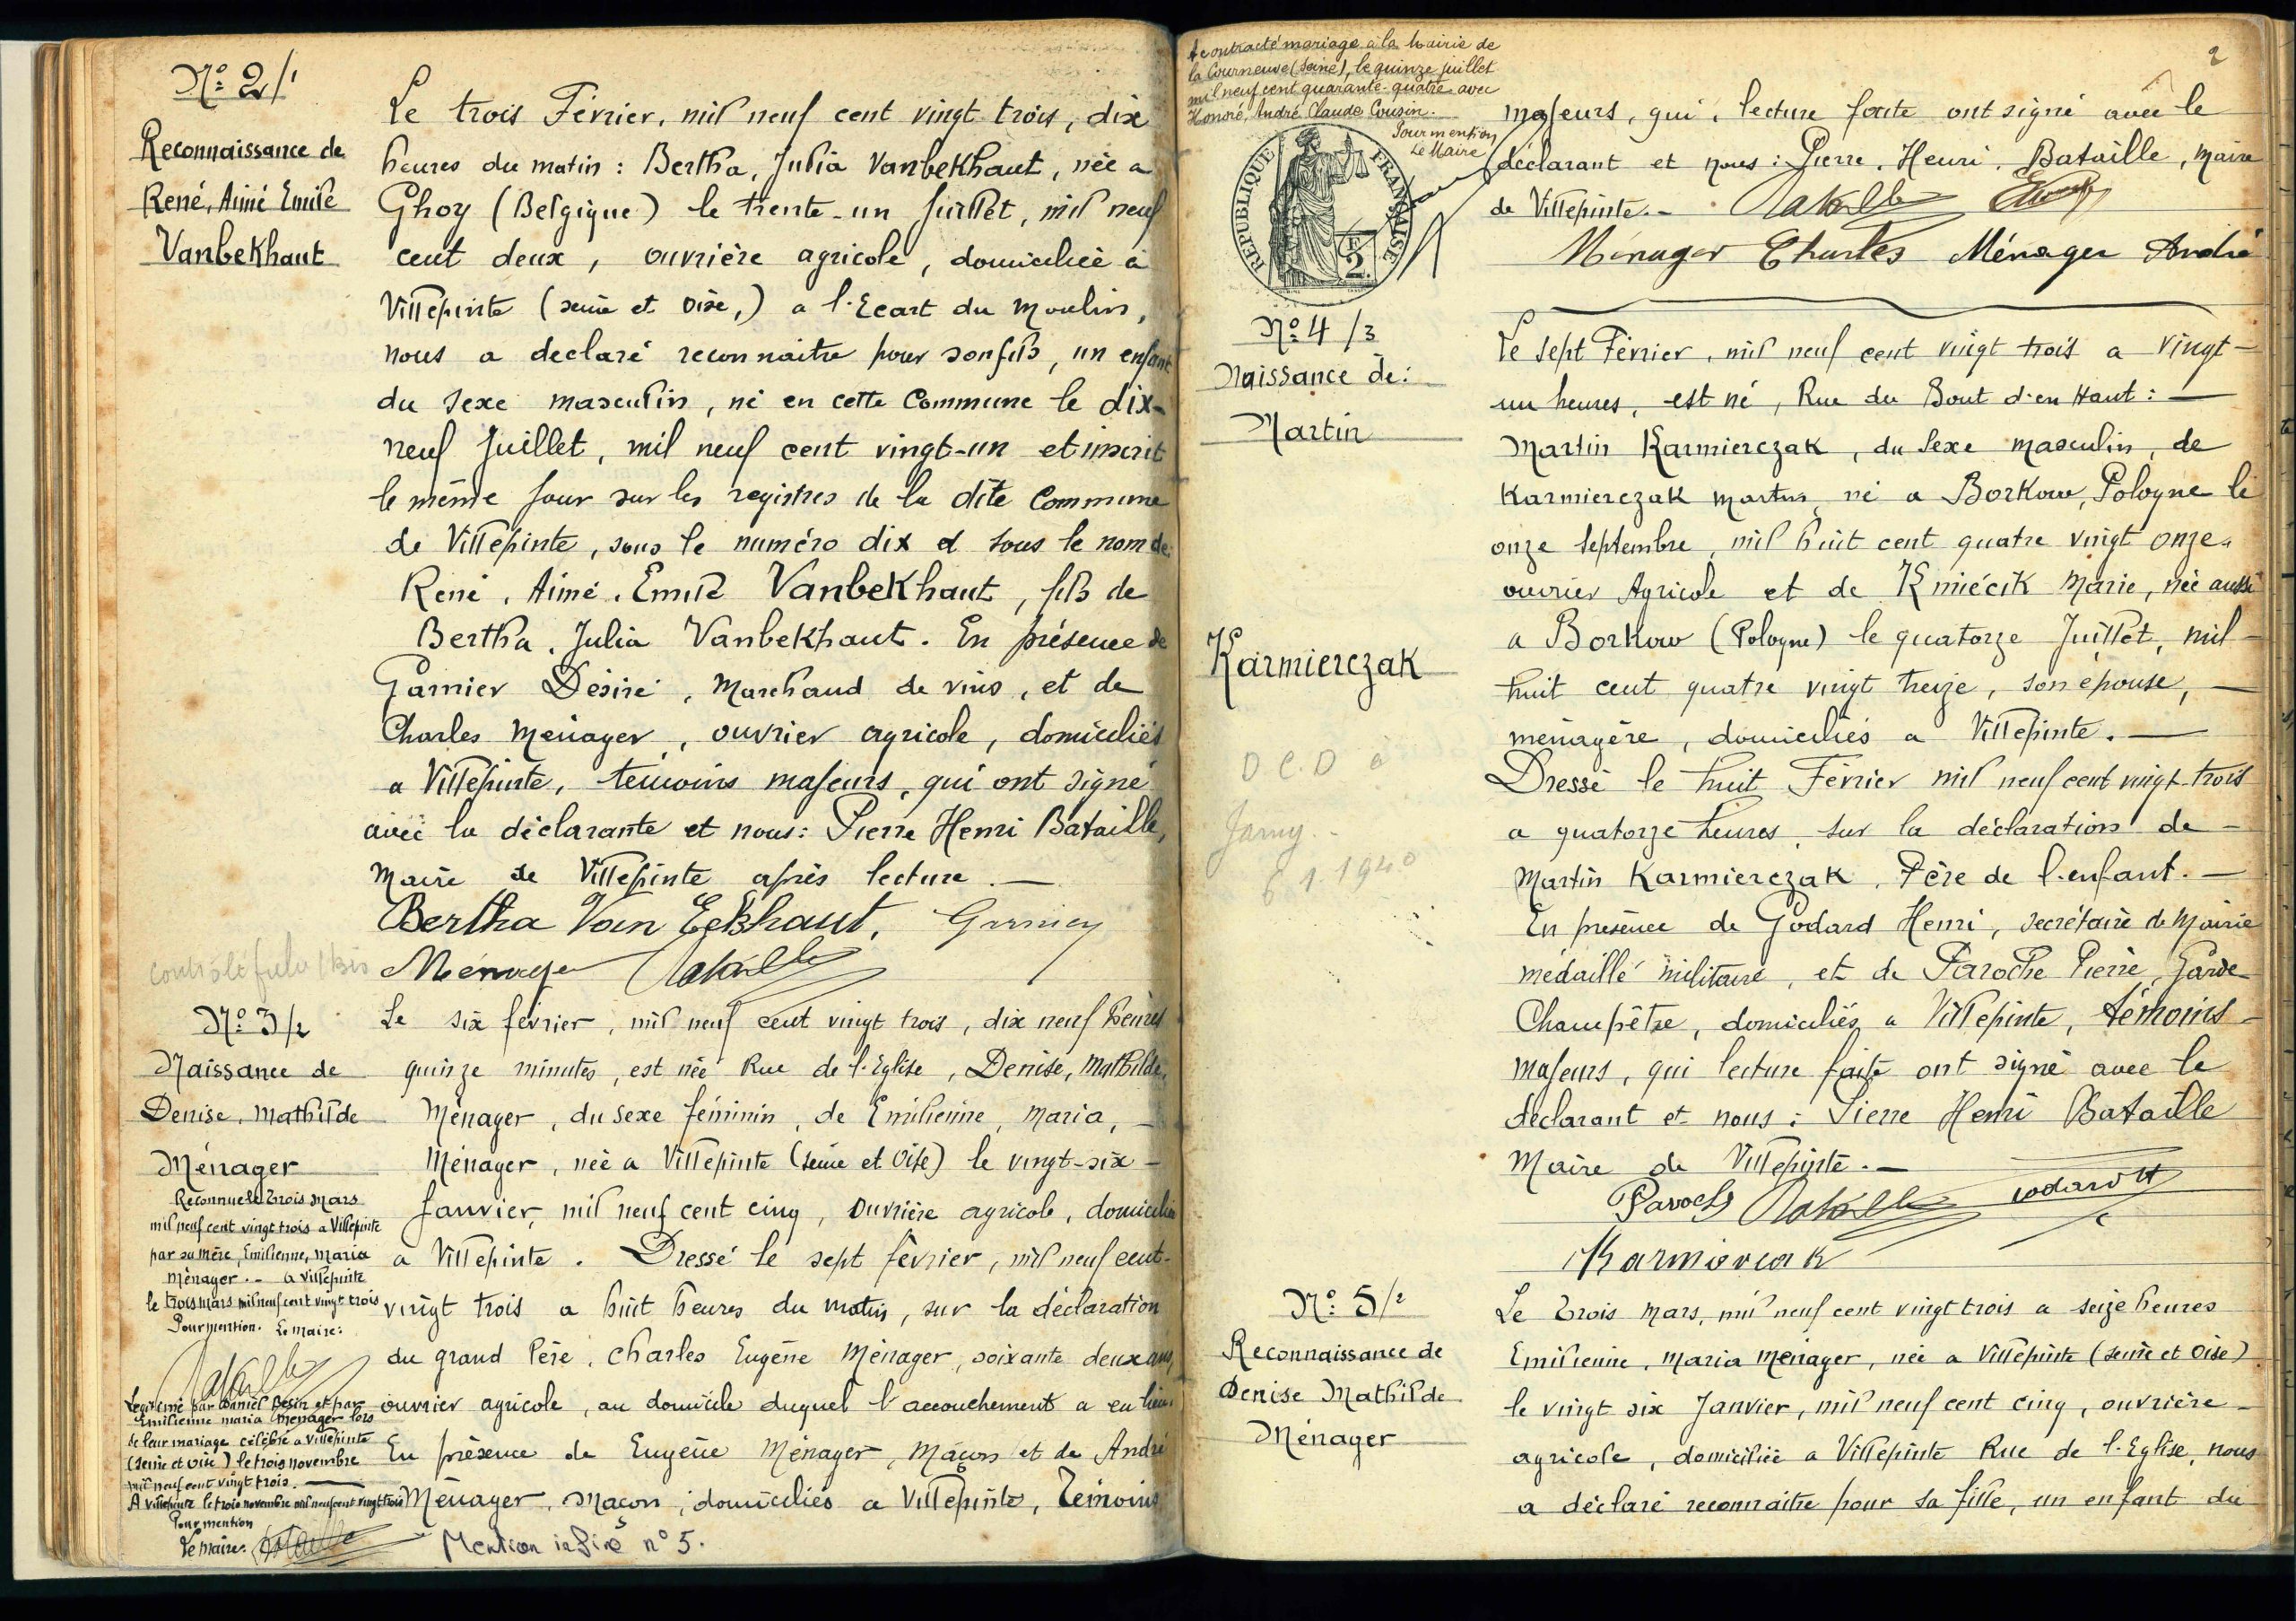 Nº 2/1
Reconnaissance de
René, Aimé Emile
Vanbekhaut
Le trois Février, mil neuf cent vingt trois, dix
heures du matin : Bertha, Julia Vanbekhaut, née a
Ghoy (Belgique) le trente-un Juillet, mil neuf
cent deux, ouvrière agricole, domiciliée à
Villepinte (seine et oise,) a l'Ecart du Moulin,
nous a declaré reconnaitre pour son fils, un enfant
du sexe masculin, né en cette Commune le dix-
neuf Juillet, mil neuf cent vingt-un et inscrit
le même jour sur les registres de la dite Commune
de Villepinte, sous le numéro dix et sous le nom de
René, Aimé, Emile Vanbekhaut, fils de
Bertha, Julia Vanbekhaut. En présence de
Garnier Désiré, Marchand de vins, et de
Charles Ménager, ouvrier agricole, domiciliés
a Villepinte, témoins majeurs, qui ont signé
avec la déclarante et nous: Pierre Henri Bataille,
Maire de Villepinte après lecture. —
Bertha Van Eekhaut, Garnier
Ménager Bataille
Nº 3/2
Naissance de
Denise, Mathilde
Ménager
Reconnue le trois Mars
mil neuf cent vingt trois a Villepinte
par sa mère, Emilienne, Maria
Ménager. - a Villepinte
le trois mars mil neuf cent vingt trois
Pour mention. Le maire:
Bataille
Légitimé par Daniel Désir et par
Emilienne maria Ménager lors
de leur mariage célébré a Villepinte
(seine et oise) le trois novembre
mil neuf cent vingt trois. —
A Villepinte le trois novembre mil neuf cent vingt trois
Pour mention
Le maire: Bataille
Le six février, mil neuf cent vingt trois, dix neuf heures
quinze minutes, est née Rue de l'Eglise, Denise, Mathilde,
Ménager, du sexe féminin, de Emilienne, Maria, —
Ménager, née a Villepinte (seine et Oise) le vingt-six -
Janvier, mil neuf cent cinq, ouvrière agricole, domiciliée
a Villepinte. Dressé le sept février, mil neuf cent-
vingt trois a huit heures du matin, sur la déclaration
du grand Père, Charles Eugène Ménager, soixante deux ans,
ouvrier agricole, au domicile duquel l'accouchement a eu lieu.
En présence de Eugène Ménager, Maçon et de André
Ménager, Maçon, domiciliés a Villepinte, Témoins
Mention n° 5.
A contracté mariage à la Mairie de
la Courneuve (Seine), le quinze juillet
mil neuf cent quarante-quatre avec
Honoré, André Claude Cousin.
Pour mention
Le Maire
2
REPUBLIQUE FRANÇAISE
2 F
majeurs, qui, lecture faite ont signé avec le
déclarant et nous : Pierre, Henri, Bataille, Maire
de Villepinte. - Bataille
Ménager Charles Ménager André
Nº 4/3
Naissance de:
Martin
Karmierczak
D C D à
Jarny.-
6 1 1940
Le sept Février, mil neuf cent vingt trois a vingt-
un heures, est né, Rue du Bout d'en Haut : —
Martin Karmierczak, du sexe masculin, de
Karmierczak Martin né a Borkow, Pologne le
onze Septembre, mil huit cent quatre vingt onze.
ouvrier Agricole et de Kmiécik Marie, née aussi
a Borkow (Pologne) le quatorze Juillet, mil -
huit cent quatre vingt treize, son épouse, —
ménagère, domiciliés a Villepinte. —
Dressé le huit Février mil neuf cent vingt-trois
a quatorze heures, sur la déclaration de -
Martin Karmierczak, Père de l'enfant. —
En présence de Godard Henri, secrétaire de Mairie
médaillé militaire, et de Paroche Pierre, Garde
Champêtre, domiciliés a Villepinte, témoins -
majeurs, qui lecture faite ont signé avec le
déclarant et nous : Pierre Henri Bataille
Maire de Villepinte. —
Paroche Bataille Godard H
Karmierczak
Nº 5/2
Reconnaissance de
Denise Mathilde
Ménager
Le trois Mars, mil neuf cent vingt trois a seize heures
Emilienne, Maria Ménager, née a Villepinte (seine et Oise)
le vingt six Janvier, mil neuf cent cinq, ouvrière -
agricole, domiciliée a Villepinte Rue de l'Eglise, nous
a déclaré reconnaitre pour sa fille, un enfant du